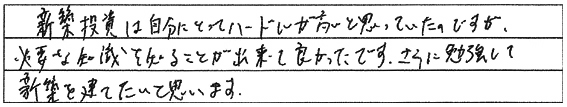 新築投資は自分にとってハードルが高いと思っていたのですが、
必要な知識を知ることが出来て良かったです。さらに勉強して
新築を建てたいと思います。